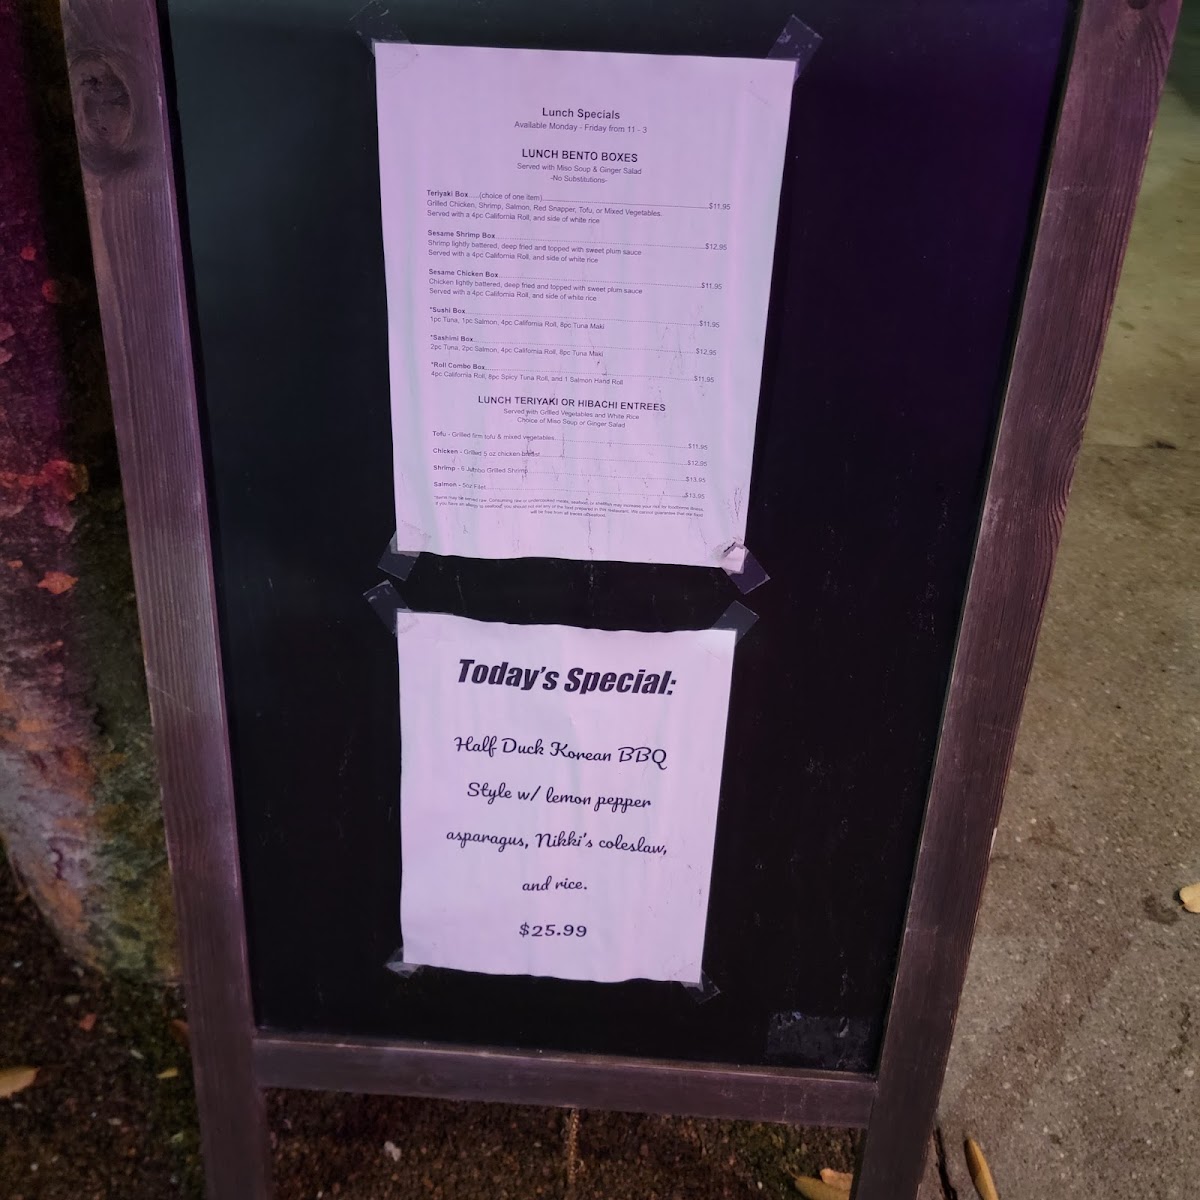 Lunch Specials
Available Monday - Friday from 11 - 3
LUNCH BENTO BOXES
Served with Miso Soup & Ginger Salad
-No Substitutions-
Teriyaki Box.....(choice of one item)..........$11.95
Grilled Chicken, Shrimp, Salmon, Red Snapper, Tofu, or Mixed Vegetables.
Served with a 4pc California Roll, and side of white rice
Sesame Shrimp Box..........$12.95
Shrimp lightly battered, deep fried and topped with sweet plum sauce
Served with a 4pc California Roll, and side of white rice
Sesame Chicken Box..........$11.95
Chicken lightly battered, deep fried and topped with sweet plum sauce
Served with a 4pc California Roll, and side of white rice
*Sushi Box..........$11.95
1pc Tuna, 1pc Salmon, 4pc California Roll, 8pc Tuna Maki
*Sashimi Box..........$12.95
2pc Tuna, 2pc Salmon, 4pc California Roll, 8pc Tuna Maki
*Roll Combo Box..........$11.95
4pc California Roll, 8pc Spicy Tuna Roll, and 1 Salmon Hand Roll
LUNCH TERIYAKI OR HIBACHI ENTREES
Served with Grilled Vegetables and White Rice
Choice of Miso Soup or Ginger Salad
Tofu - Grilled firm tofu & mixed vegetables..........$11.95
Chicken - Grilled 5 oz chicken breast..........$12.95
Shrimp - 6 Jumbo Grilled Shrimp..........$13.95
Salmon - 5oz Filet..........$13.95
Today's Special:
Half Duck Korean BBQ
Style w/ lemon pepper
asparagus, Nikki's coleslaw,
and rice.
$25.99